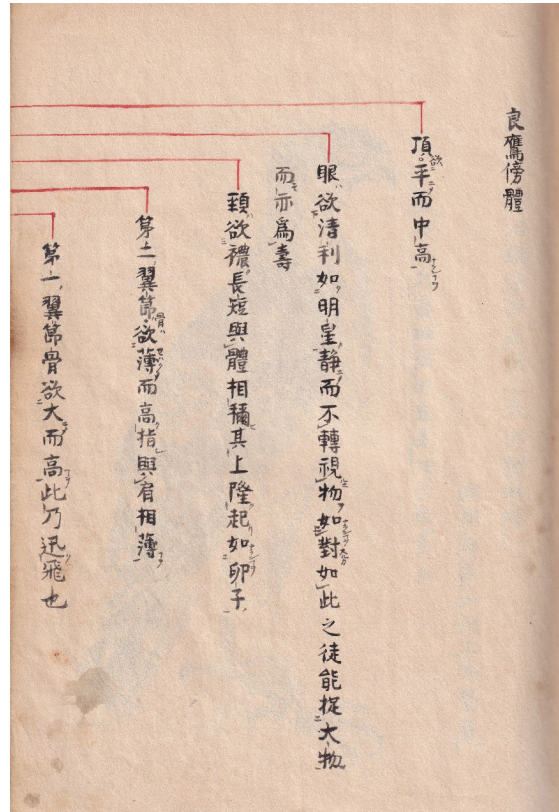 良鷹傍體
頂欲平而中高
眼欲清利如明星静而不轉視物如對如此之徒能捉大物
而亦為壽
頚欲禯長短與體相稱其上隆起如卵子
第二翼節骨欲薄而高指與肩相薄
第一翼節骨欲大而高此乃迅飛也